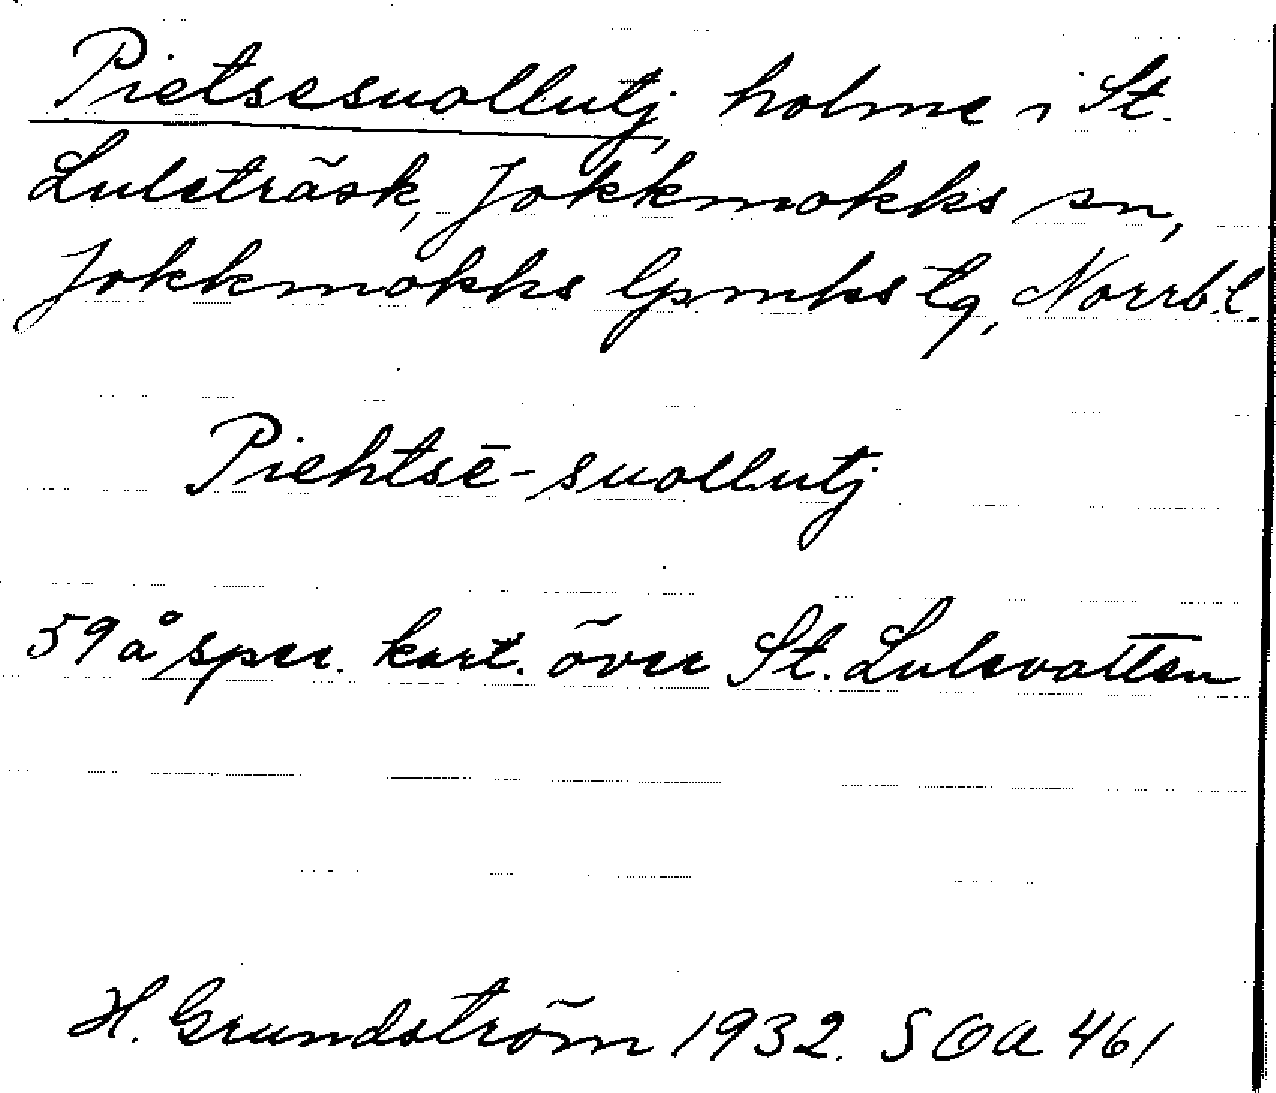 Pietsesuollutj, holme i St.
Luleträsk, Jokkmokks sn,
Jokkmokks lpmks tg, Norrb.l.
Piehtsē-suollutj
59 å spec. kart. över St. Lulevatten
H. Grundström 1932. SOA 461